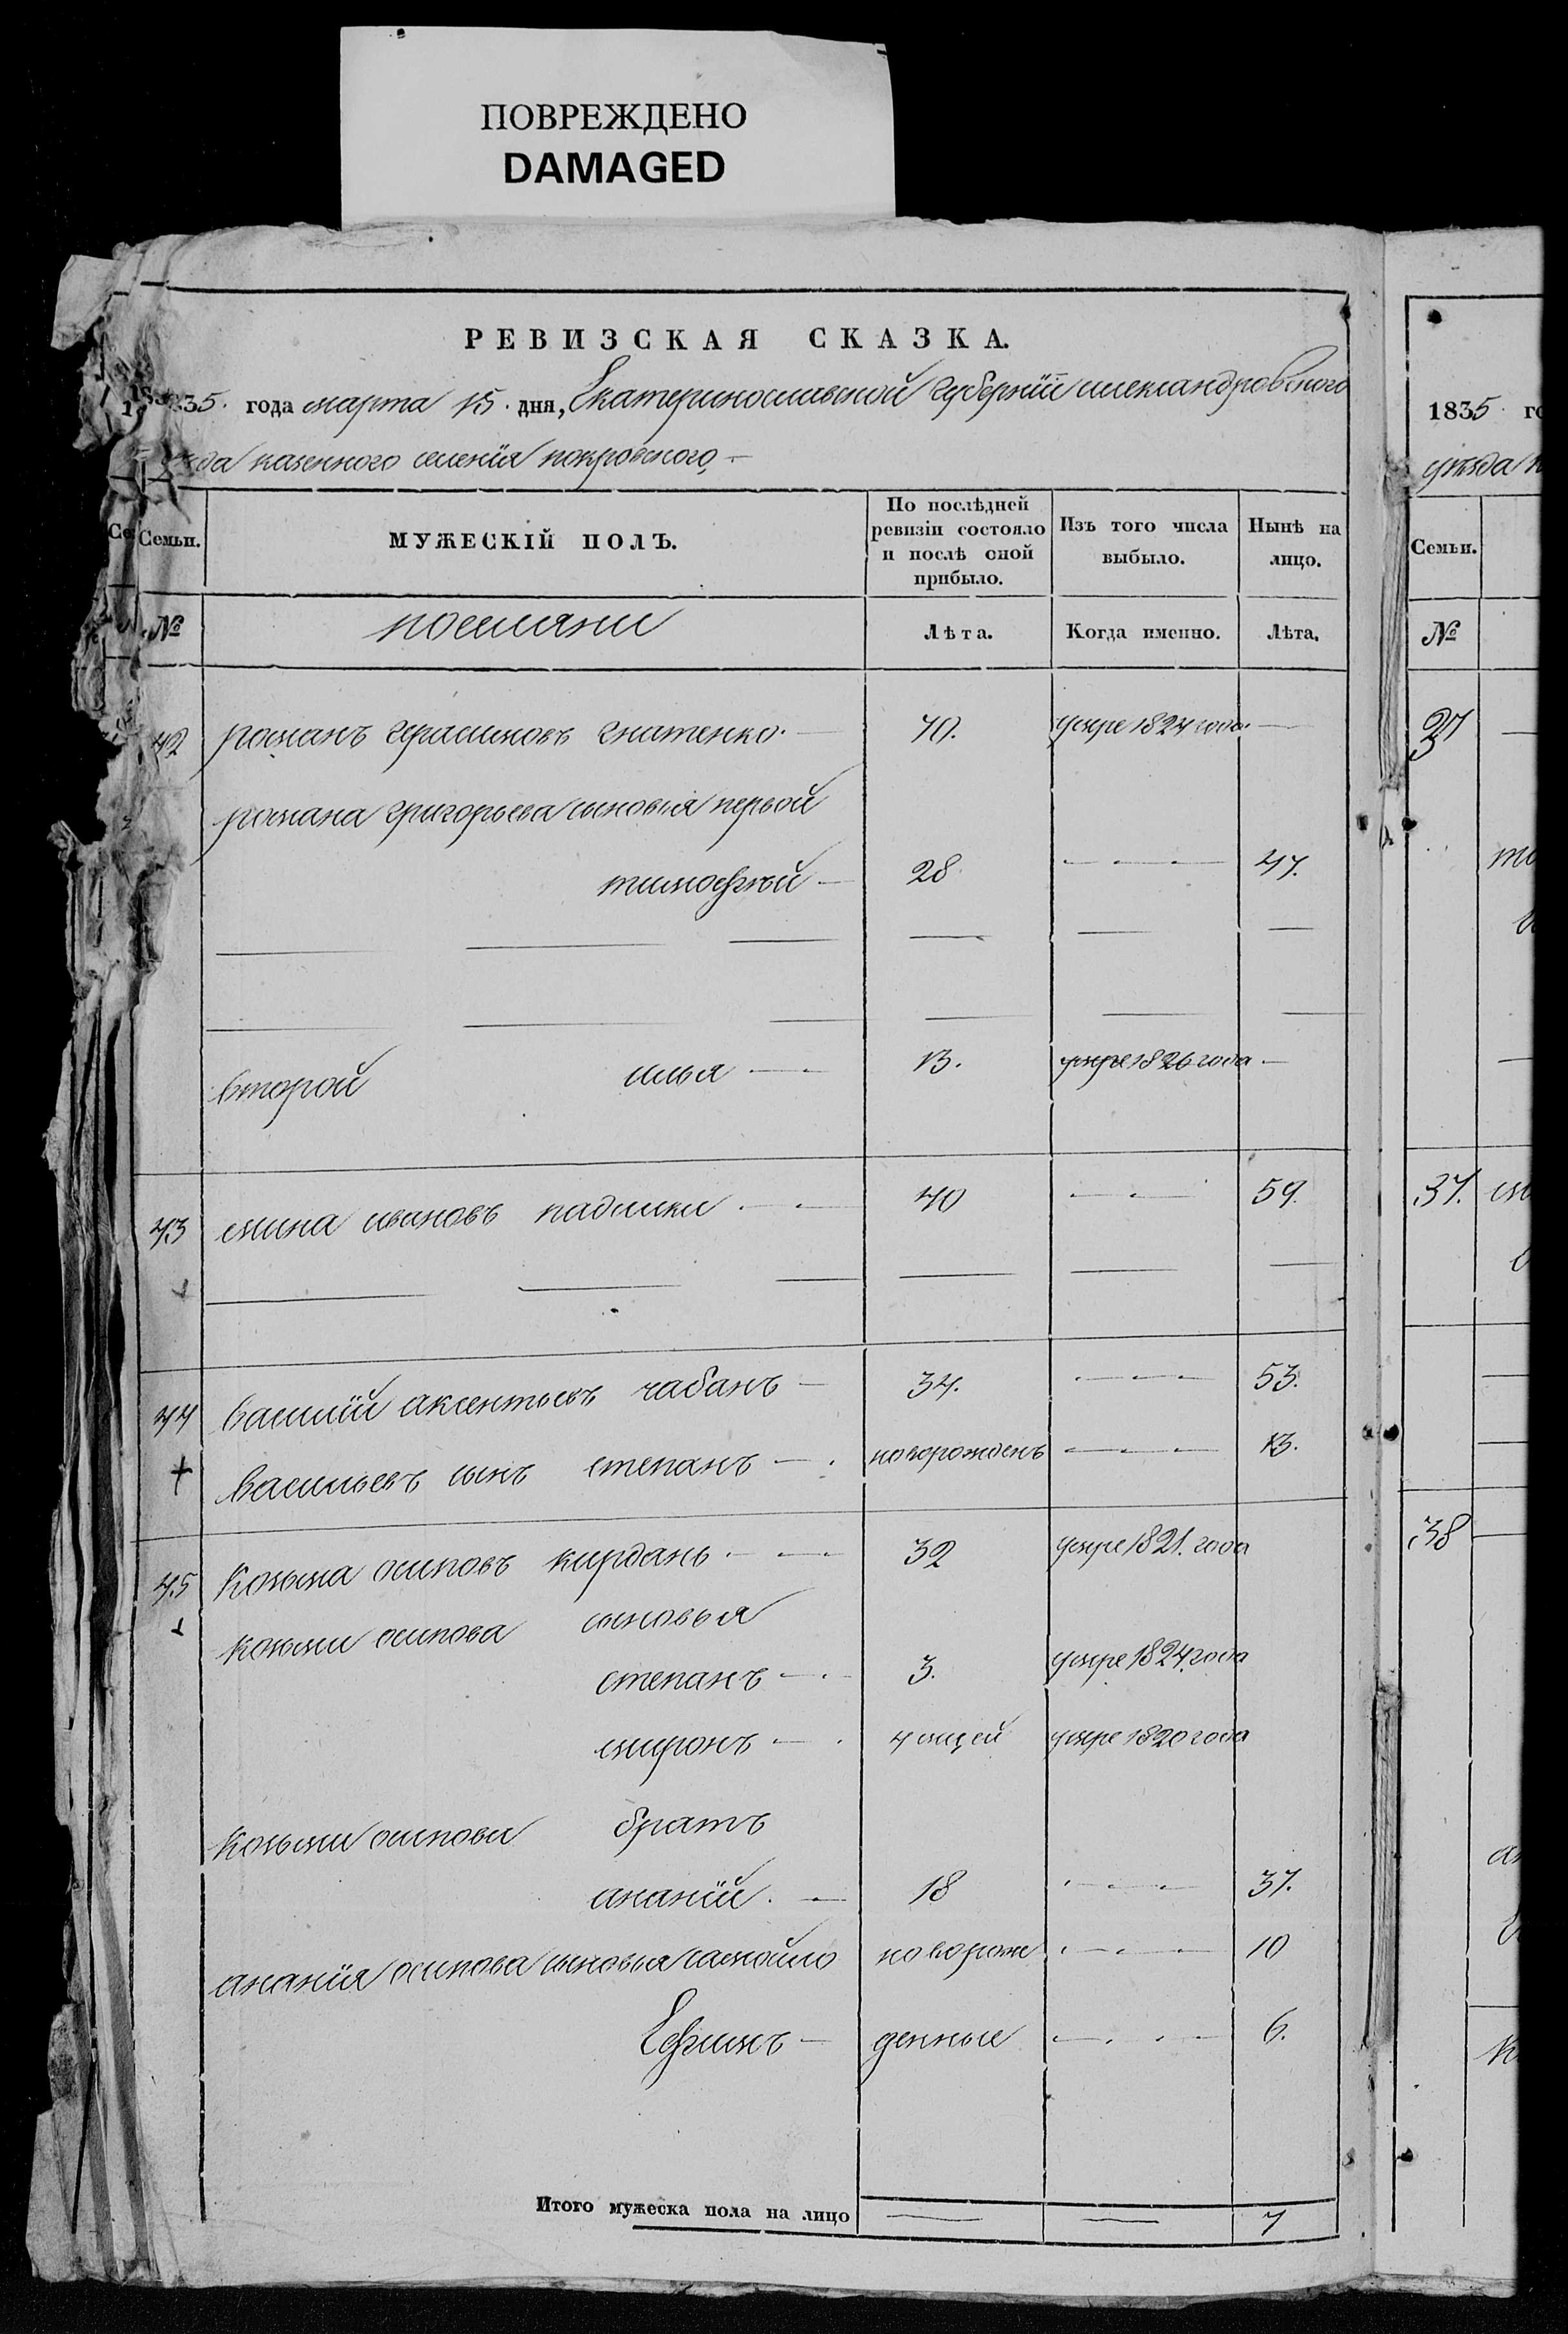 ПОВРЕЖДЕНО
DAMAGED
РЕВИЗСКАЯ СКАЗКА.
1835. года марта 15. дня, Екатеринославской губернїи александровского
уѣзда казенного селенїя покровского,
Семьи. МУЖЕСКІЙ ПОЛЪ. По послѣдней ревизіи состояло и послѣ оной прибыло. Изъ того числа выбыло. Нынѣ на лицо.
№ поселяни Лѣта. Когда именно. Лѣта.
42 романъ герасимовъ гнатенко. 70. умре 1824 года.
романа григорьева сыновья первой
тимофѣй 28 47.
второй илья 13. умре 1826 года
43 мина ивановъ падалки 40 59.
44 василїй аксентьевъ чабанъ 34. 53.
васильевъ сынъ степанъ новорожденъ 13.
45 козьма осиповъ кирдань 32 умре 1821. года
козьми осипова сыновья
степанъ 3. умре 1824. года
миронъ 4 мцей умре 1820 года
козьми осипова братъ
ананїй 18 37.
ананїя осипова сыновья самойло новорож 10
Ефимъ денные 6.
Итого мужеска пола на лицо 7
1835 го
уѣзда
Семьи.
№
37
37.
38